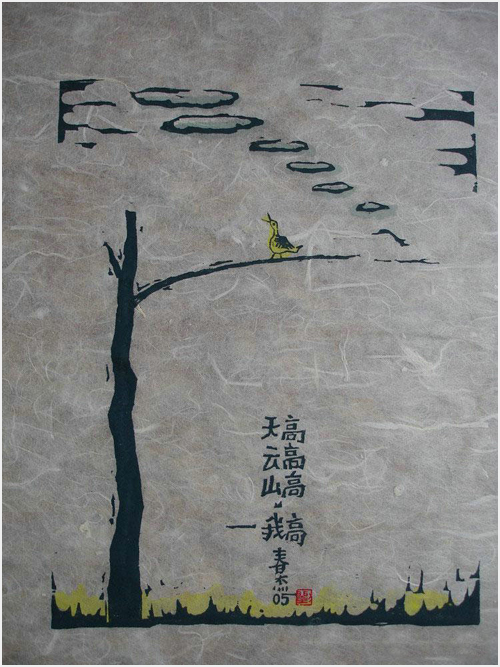 天高
云高
山高
一我高
春杰
05